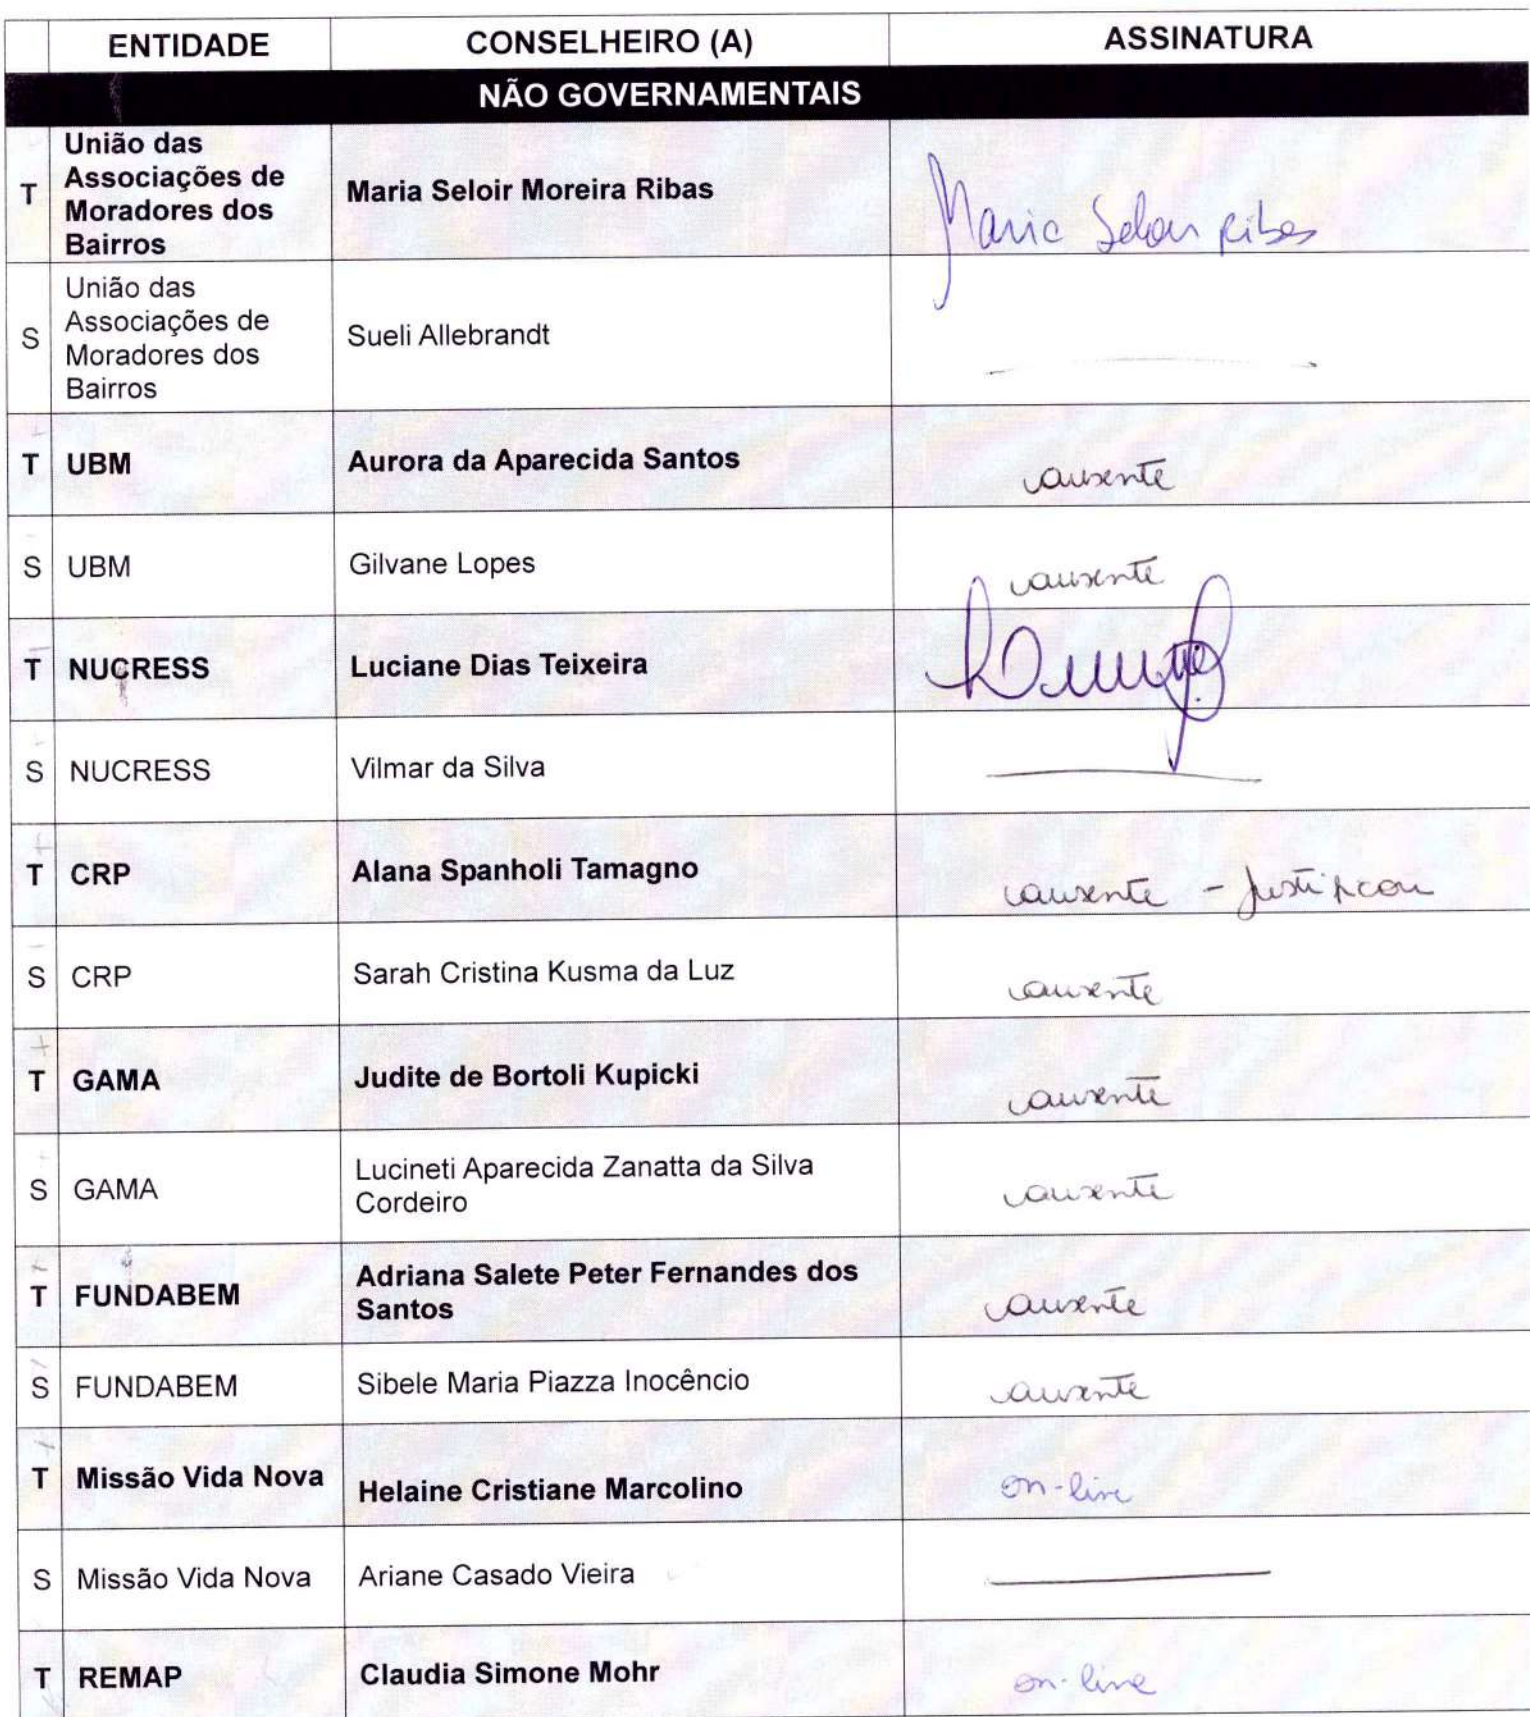 ENTIDADE CONSELHEIRO (A) ASSINATURA
NÃO GOVERNAMENTAIS
União das
Associações de
T Moradores dos Maria Seloir Moreira Ribas Maria Seloir Ribas
Bairros
União das
Associações de
S Moradores dos Sueli Allebrandt
Bairros
T UBM Aurora da Aparecida Santos ausente
S UBM Gilvane Lopes ausente
T NUCRESS Luciane Dias Teixeira
S NUCRESS Vilmar da Silva
T CRP Alana Spanholi Tamagno ausente - Justificou
S CRP Sarah Cristina Kusma da Luz ausente
T GAMA Judite de Bortoli Kupicki ausente
S GAMA Lucineti Aparecida Zanatta da Silva
Cordeiro ausente
T FUNDABEM Adriana Salete Peter Fernandes dos
Santos ausente
S FUNDABEM Sibele Maria Piazza Inocêncio ausente
T Missão Vida Nova Helaine Cristiane Marcolino on-line
S Missão Vida Nova Ariane Casado Vieira
T REMAP Claudia Simone Mohr on-line